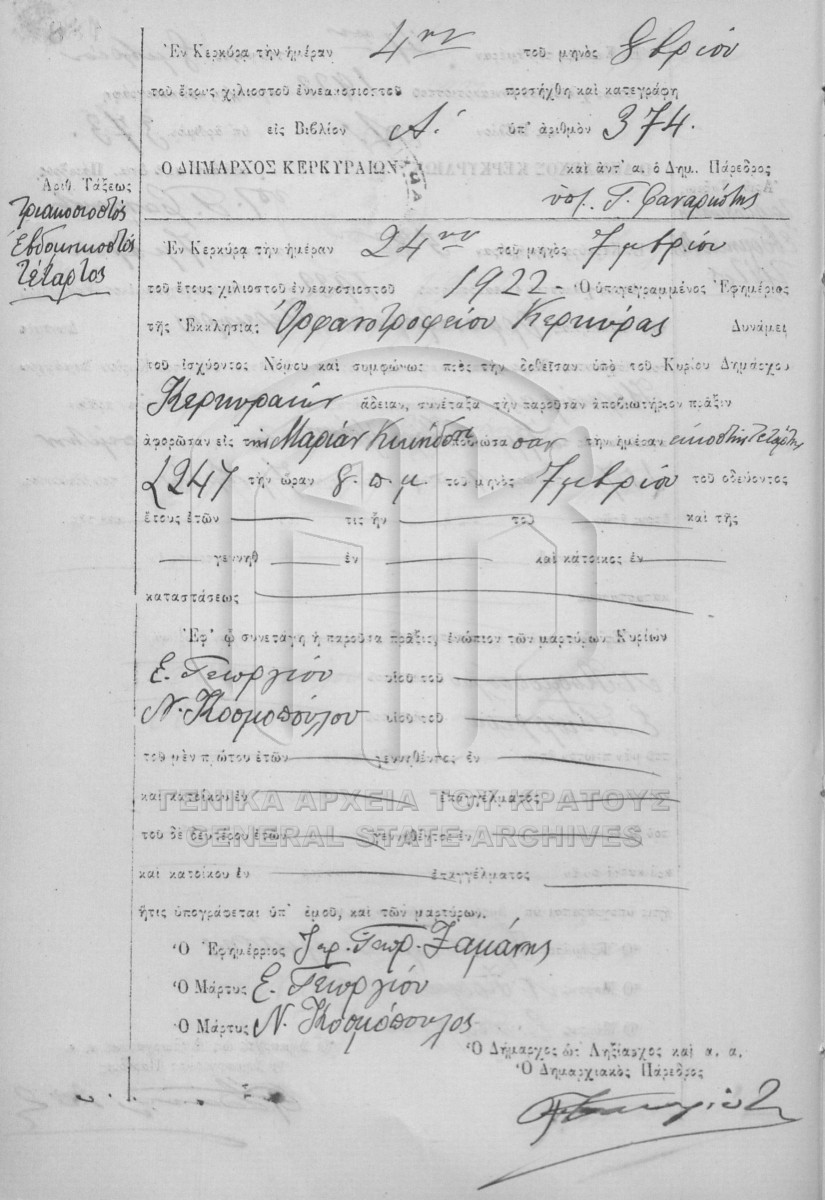 Ἐν Κερκύρᾳ τὴν ἡμέραν 4ην τοῦ μηνὸς 8βρίου
τοῦ ἔτους χιλιοστοῦ ἐννεακοσιοστοῦ προσήχθη καὶ κατεγράφη
εἰς Βιβλίον Α΄. ὑπ' ἀριθμὸν 374.
Ὁ ΔΗΜΑΡΧΟΣ ΚΕΡΚΥΡΑΙΩΝ καὶ ἀντ' α. ὁ Δημ. Πάρεδρος
Γ. Φαναριώτης
Ἀριθ. Τάξεως
τριακοσιοστός
ἑβδομηκοστός
τέταρτος
Ἐν Κερκύρᾳ τὴν ἡμέραν 24ην τοῦ μηνὸς 7μβρίου
τοῦ ἔτους χιλιοστοῦ ἐννεακοσιοστοῦ 1922 - Ὁ ὑπογεγραμμένος Ἐφημέριος
τῆς Ἐκκλησίας Ὀρφανοτροφείου Κερκύρας Δυνάμει
τοῦ ἰσχύοντος Νόμου καὶ συμφώνως πρὸς τὴν δοθεῖσαν ὑπὸ τοῦ Κυρίου Δημάρχου
Κερκυραίων ἄδειαν, συνέταξα τὴν παροῦσαν ἀποβιωτήριον πρᾶξιν
ἀφορῶσαν εἰς τὴν Μαρίαν σαν τὴν ἡμέραν εἰκοστὴν τετάρτην
L247 τὴν ὥραν 8. π. μ. τοῦ μηνὸς 7μβρίου τοῦ ὁδεύοντος
ἔτους ἐτῶν τις ἦν τοῦ καὶ τῆς
γεννηθ ἐν καὶ κάτοικος ἐν
καταστάσεως
Ἐφ' ᾧ συνετάγη ἡ παροῦσα πρᾶξις, ἐνώπιον τῶν μαρτύρων Κυρίων
Ε. Γεωργίου υἱοῦ τοῦ
Ν. Κοσμοπούλου υἱοῦ τοῦ
τοῦ μὲν πρώτου ἐτῶν γεννηθέντος ἐν
καὶ κατοίκου ἐν ἐπαγγέλματος
ΓΕΝΙΚΑ ΑΡΧΕΙΑ ΤΟΥ ΚΡΑΤΟΥΣ
τοῦ δὲ δευτέρου ἐτῶν γεννηθέντος ἐν
GENERAL STATE ARCHIVES
καὶ κατοίκου ἐν ἐπαγγέλματος
ἥτις ὑπογράφεται ὑπ' ἐμοῦ, καὶ τῶν μαρτύρων.
Ὁ Ἐφημέριος Ἱερ. Γεωρ. Ζαμάνης
Ὁ Μάρτυς Ε. Γεωργίου
Ὁ Μάρτυς Ν. Κοσμόπουλος
Ὁ Δήμαρχος ὡς Ληξίαρχος καὶ α. α.
Ὁ Δημαρχιακὸς Πάρεδρος